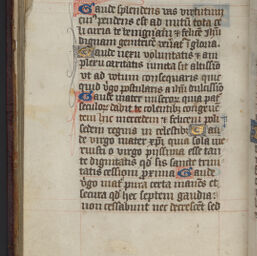 Gaude splendens vas virtutum
cui' pendens est ad nutū tota ce
li curia te benignam & felicē ihū
dignam genitricē veñat ī gloria.
Gaude nexu voluntatis & am
plexu caritatis iuncta sit altissīo
vt ad votum consequaris quic
quid vgo postularis a ihū dulcissīo
Gaude mater miserorū quia pat̄
seculorū dabit te colentibz congruē
tem hic mercedem & felicem poli
sedem regina in celestibz Gau
de virgo mater xpī quia sola me
ruisti o virgo pijssima esse tan
te dignitatis qd sis sancte trini
tatis cessioni pxima Gaude
vgo mat pura certa manēs et
secura qd hec septem gaudia
non cessabunt nec decrescēt sed